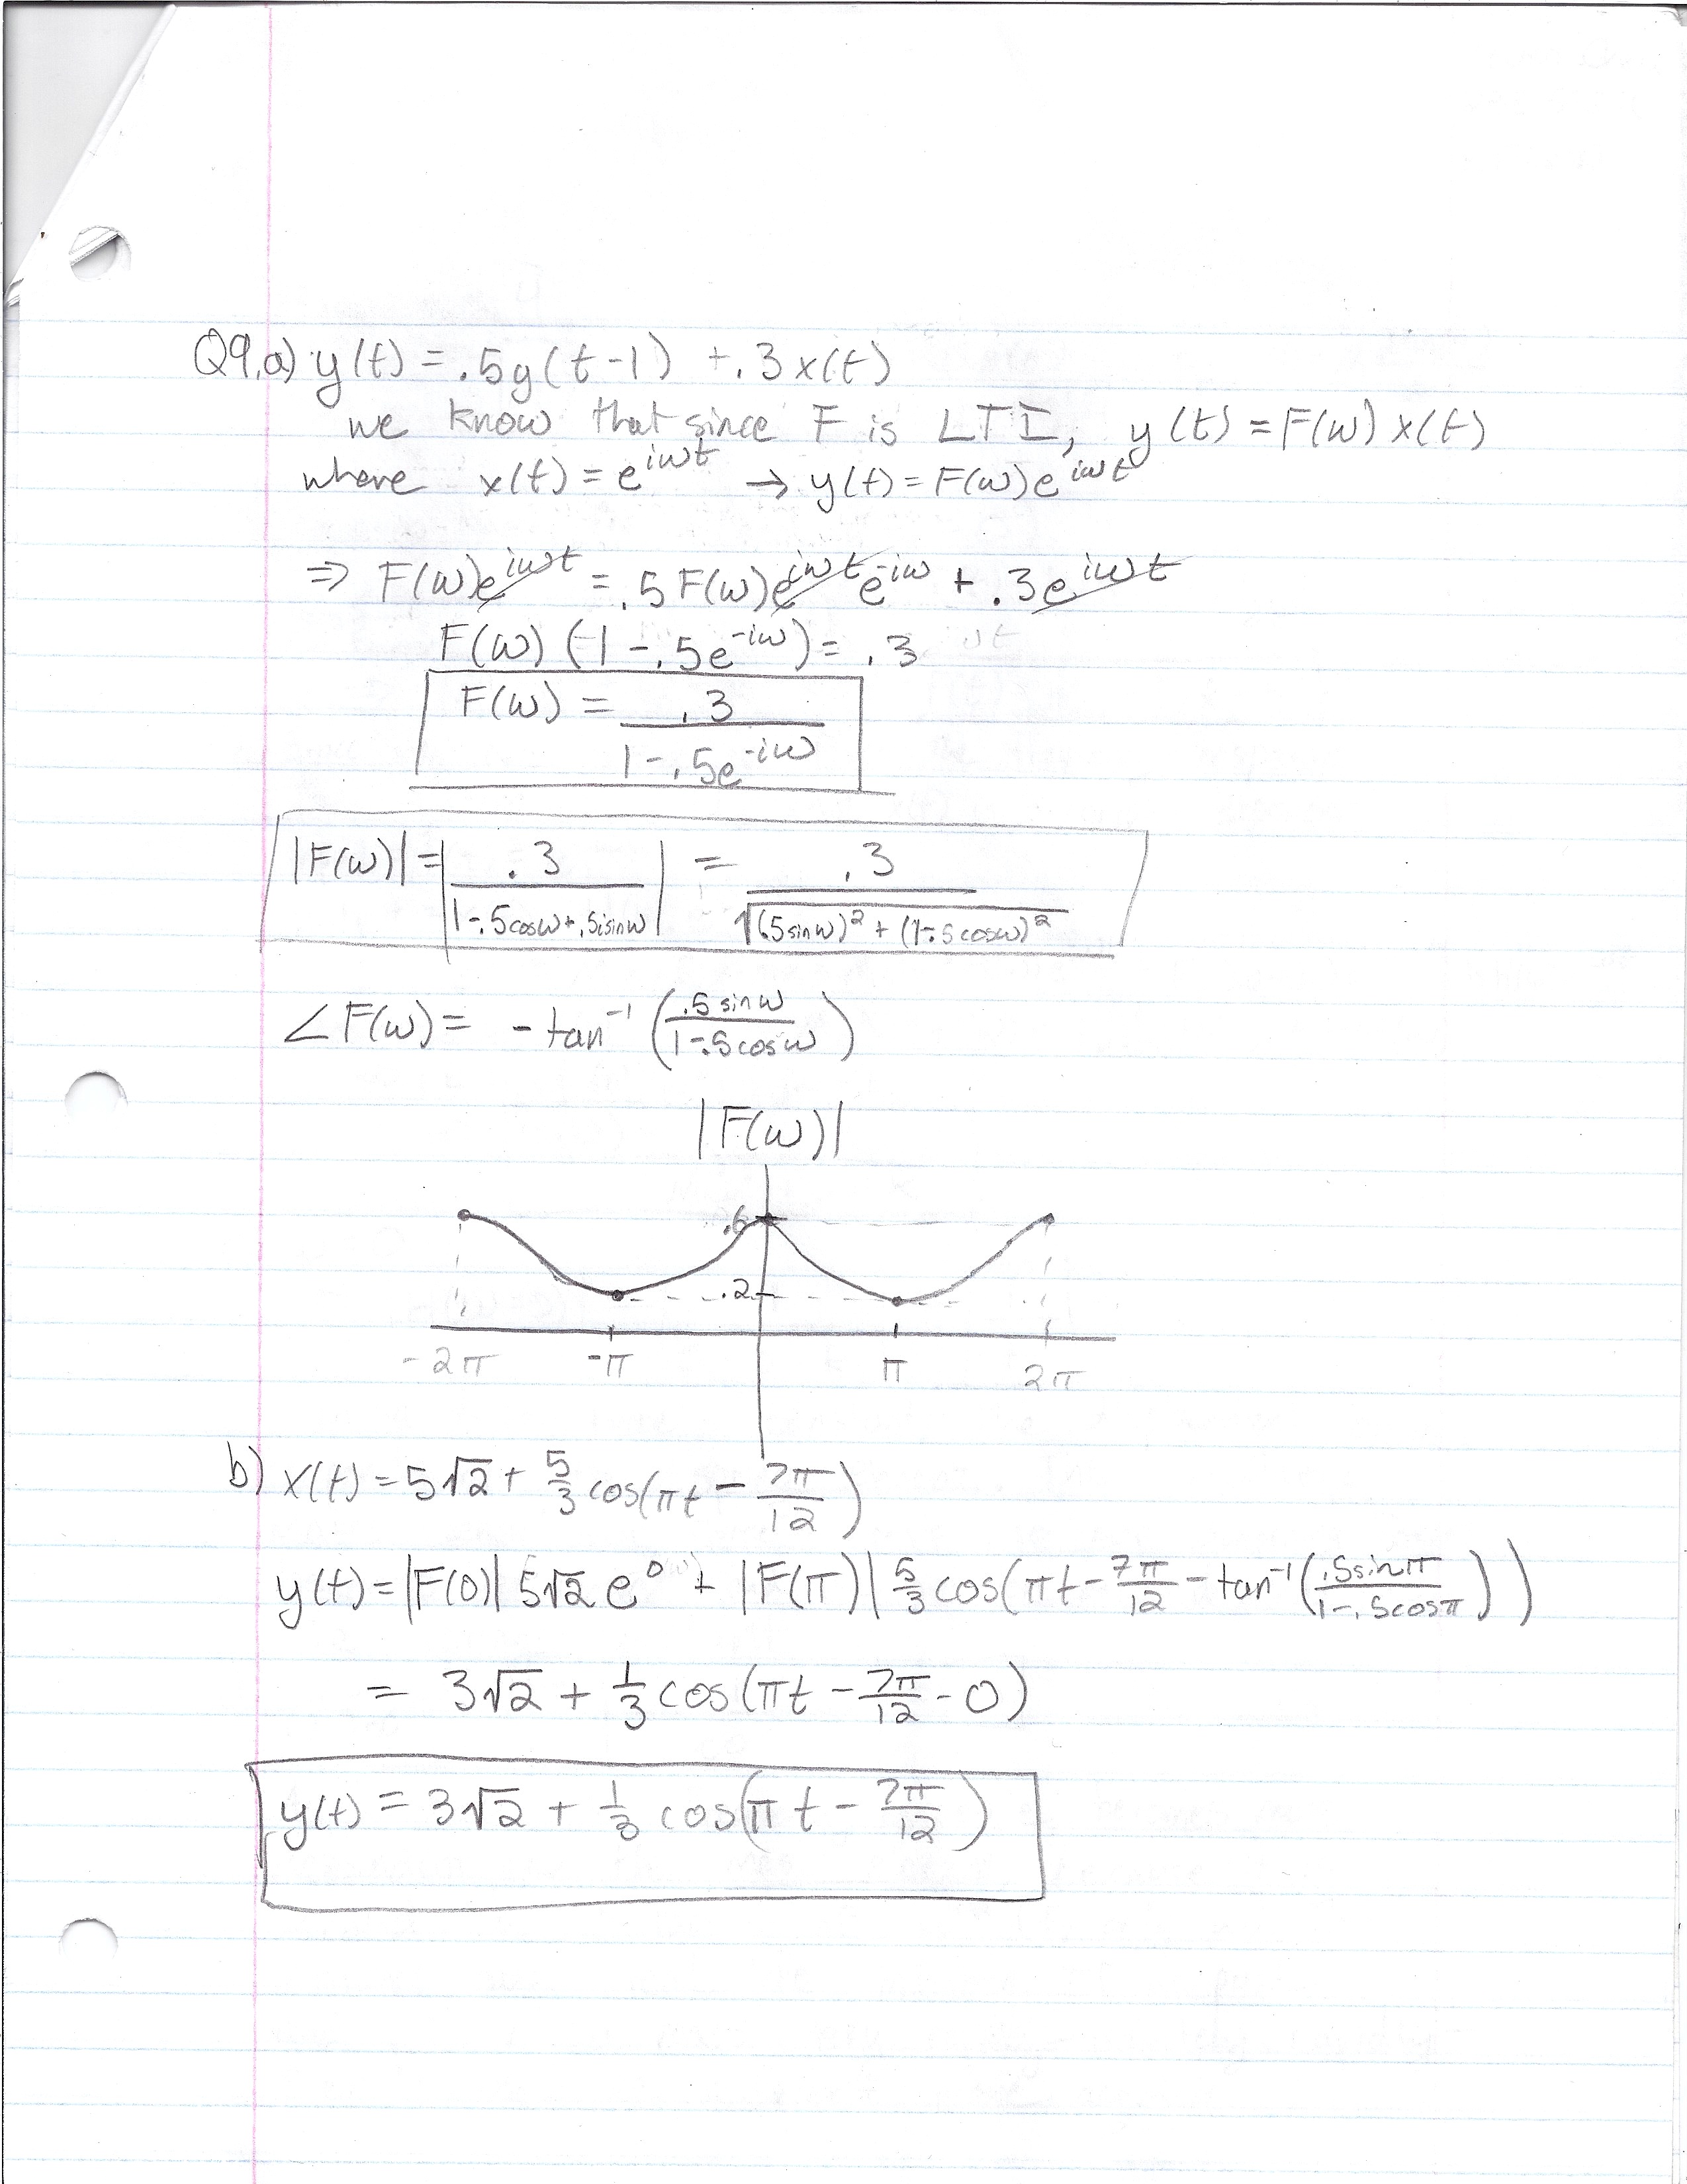 Q9.a) y(t) = .5y(t-1) + .3x(t)
we know that since F is LTI, y(t) = F(ω)x(t)
where x(t) = e^{iωt} → y(t) = F(ω)e^{iωt}
⇒ F(ω)e^{iωt} = .5F(ω)e^{iωt}e^{-iω} + .3e^{iωt}
F(ω)(1-.5e^{-iω}) = .3
F(ω) = .3 / (1-.5e^{-iω})
|F(ω)| = |.3 / (1-.5cosω+.5isinω)| = .3 / √((.5sinω)² + (1-.5cosω)²)
∠F(ω) = -tan⁻¹(.5sinω / (1-.5cosω))
|F(ω)|
.6
.2
-2π -π π 2π
b) x(t) = 5√2 + 5/3 cos(πt - 7π/12)
y(t) = |F(0)| 5√2 e⁰ + |F(π)| 5/3 cos(πt - 7π/12 - tan⁻¹(.5sinπ / (1-.5cosπ)))
= 3√2 + 1/3 cos(πt - 7π/12 - 0)
y(t) = 3√2 + 1/3 cos(πt - 7π/12)